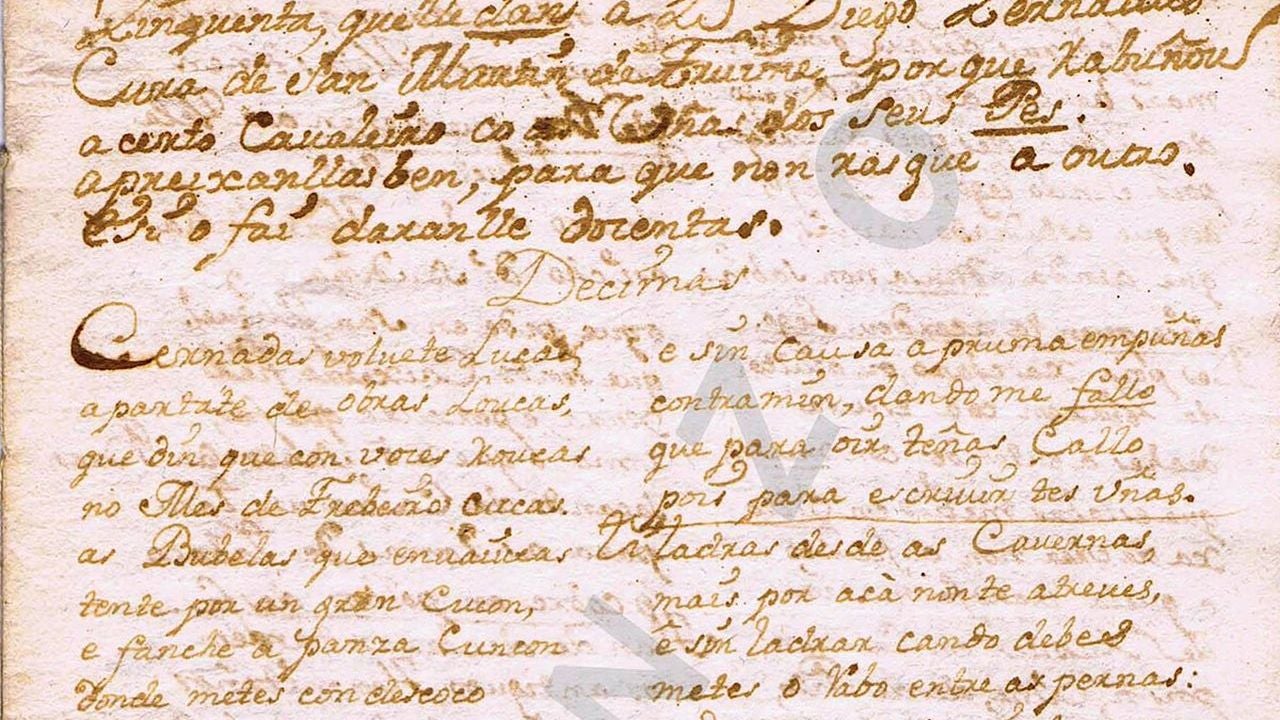 Zinquenta, quelle dans a D. Diego Zernadas
Cura de San Martiñ de Fruime, por que rabuñou
a certo Cavaleiro co as Uñas dos seus Pes.
apreixanllas ben, para que non rasque a outro.
e si o fai daranlle docentas.
Decimas
Cernadas volvete Lucas,
apartate de obras Loucas,
que din que con voces roucas
no Mes de Frebeiro cucas.
as Bubelas que envaucas
tente por un gran Cucon,
e fanche a panza Cuncon
donde metes con descoco
e sin causa a pruma empuñas
contra min, dando me fallo
que para oir teñas Callo
pois para escrivir tes uñas.
ladras desde as Cavernas,
mais por acà non te atreves,
e sin ladrar cando debes
metes o Rabo entre as pernas:
N Z O